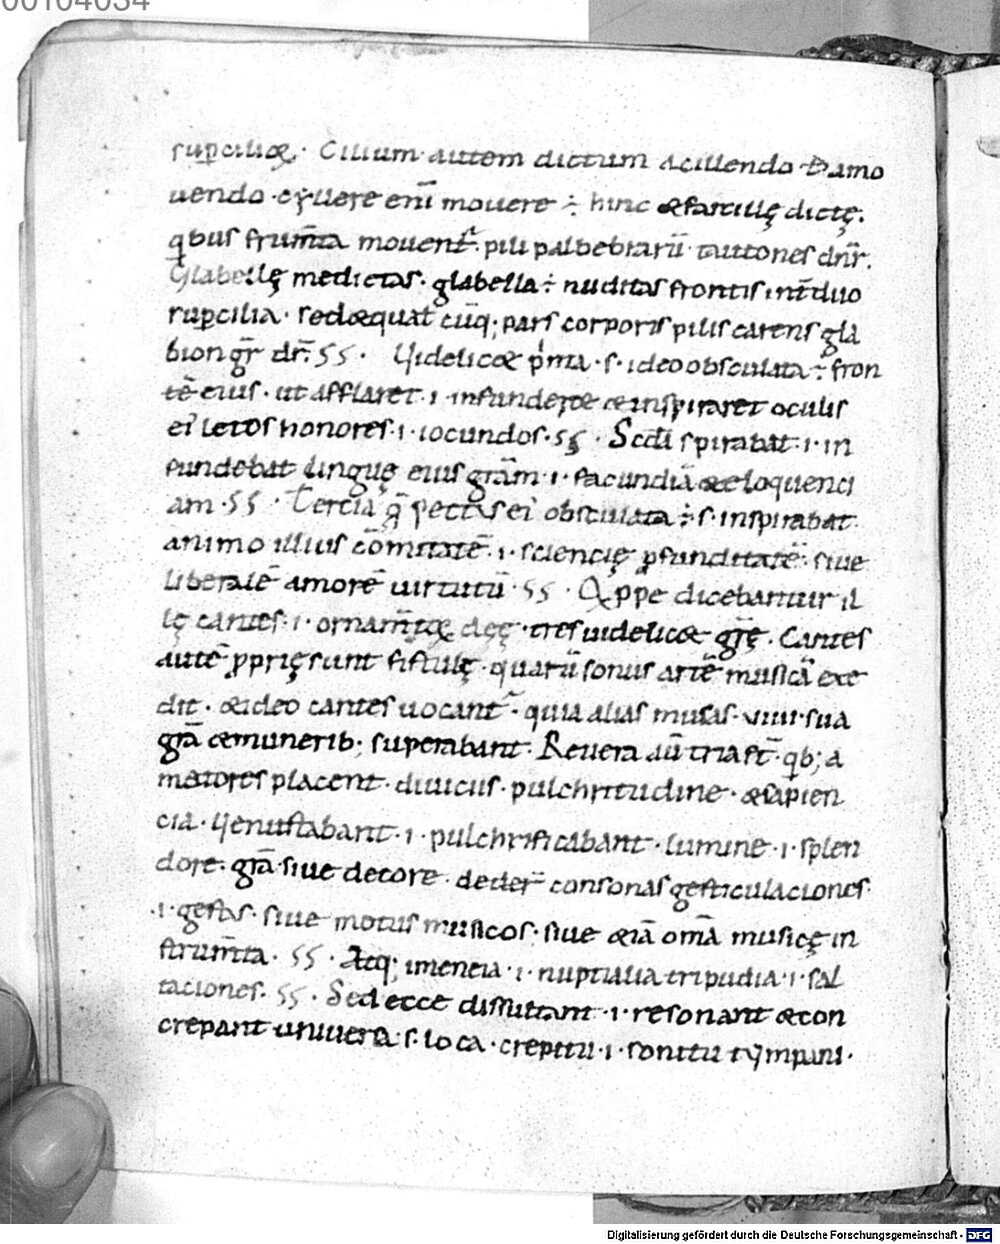 00104034
sup̄cilioꝝ. Cilium autem dictum a cillendo. & amo
uendo. cẏllere eni᷃ mouere ÷ hinc & farcillę dictę.
q̇bus frum̄ta mouent᷑. pili palbebrarū tautones dn̄r.
Glabellę medietas. glabella ÷ nuditas frontis int̄ duo
sup̄cilia. sed &equat̄ cūq; pars corporis pilis carens gla
bion gr̄ dr̄. ss. Videlic& p̍ma. s. ideo obsculata ÷ fron
tē eius. ut afflaret. i. infunder& & inspiraret oculis
ei᷒ letos honores. i. iocundos. ss. Scd̄i spirabat. i. in
fundebat linguę eius grām. i. facundiā & eloquenci
am. ss. Tercia q̄ pectus ei᷒ obsculata ÷ s. inspirabat
animo illius cōmitatē. i. sciencię ꝓfunditatē. siue
liberalē amorē uirtutū. ss. Q̇ppe dicebantur il
lę carites. i. ornam̄toꝝ deę. tres uidelic& gr̄ę. Carites
autē ꝓprię sunt fistulę. quarū sonus artē musicā exce
dit. & ideo carites uocant᷑. quia alias musas. viiii. sua
grā & munerib; superabant. Reuera aū tria st̄. q̇b; a
matores placent. diuiciis. pulchritudine. & sapien
cia. Uenustabant. i. pulchrificabant. lumine. i. splen
dore. grā siue decore. dedeř consonas gesticulaciones
.i. gestus. siue motus musicos. siue &iā om̄a musicę in
strum̄ta. ss. Atq; imeneia. i. nuptialia tripudia. i. sal
taciones. ss. Sed ecce dissultant. i. resonant & con
crepant uniuersa. s. loca. crepitu. i. sonitu tẏmpani.
Digitalisierung gefördert durch die Deutsche Forschungsgemeinschaft - DFG